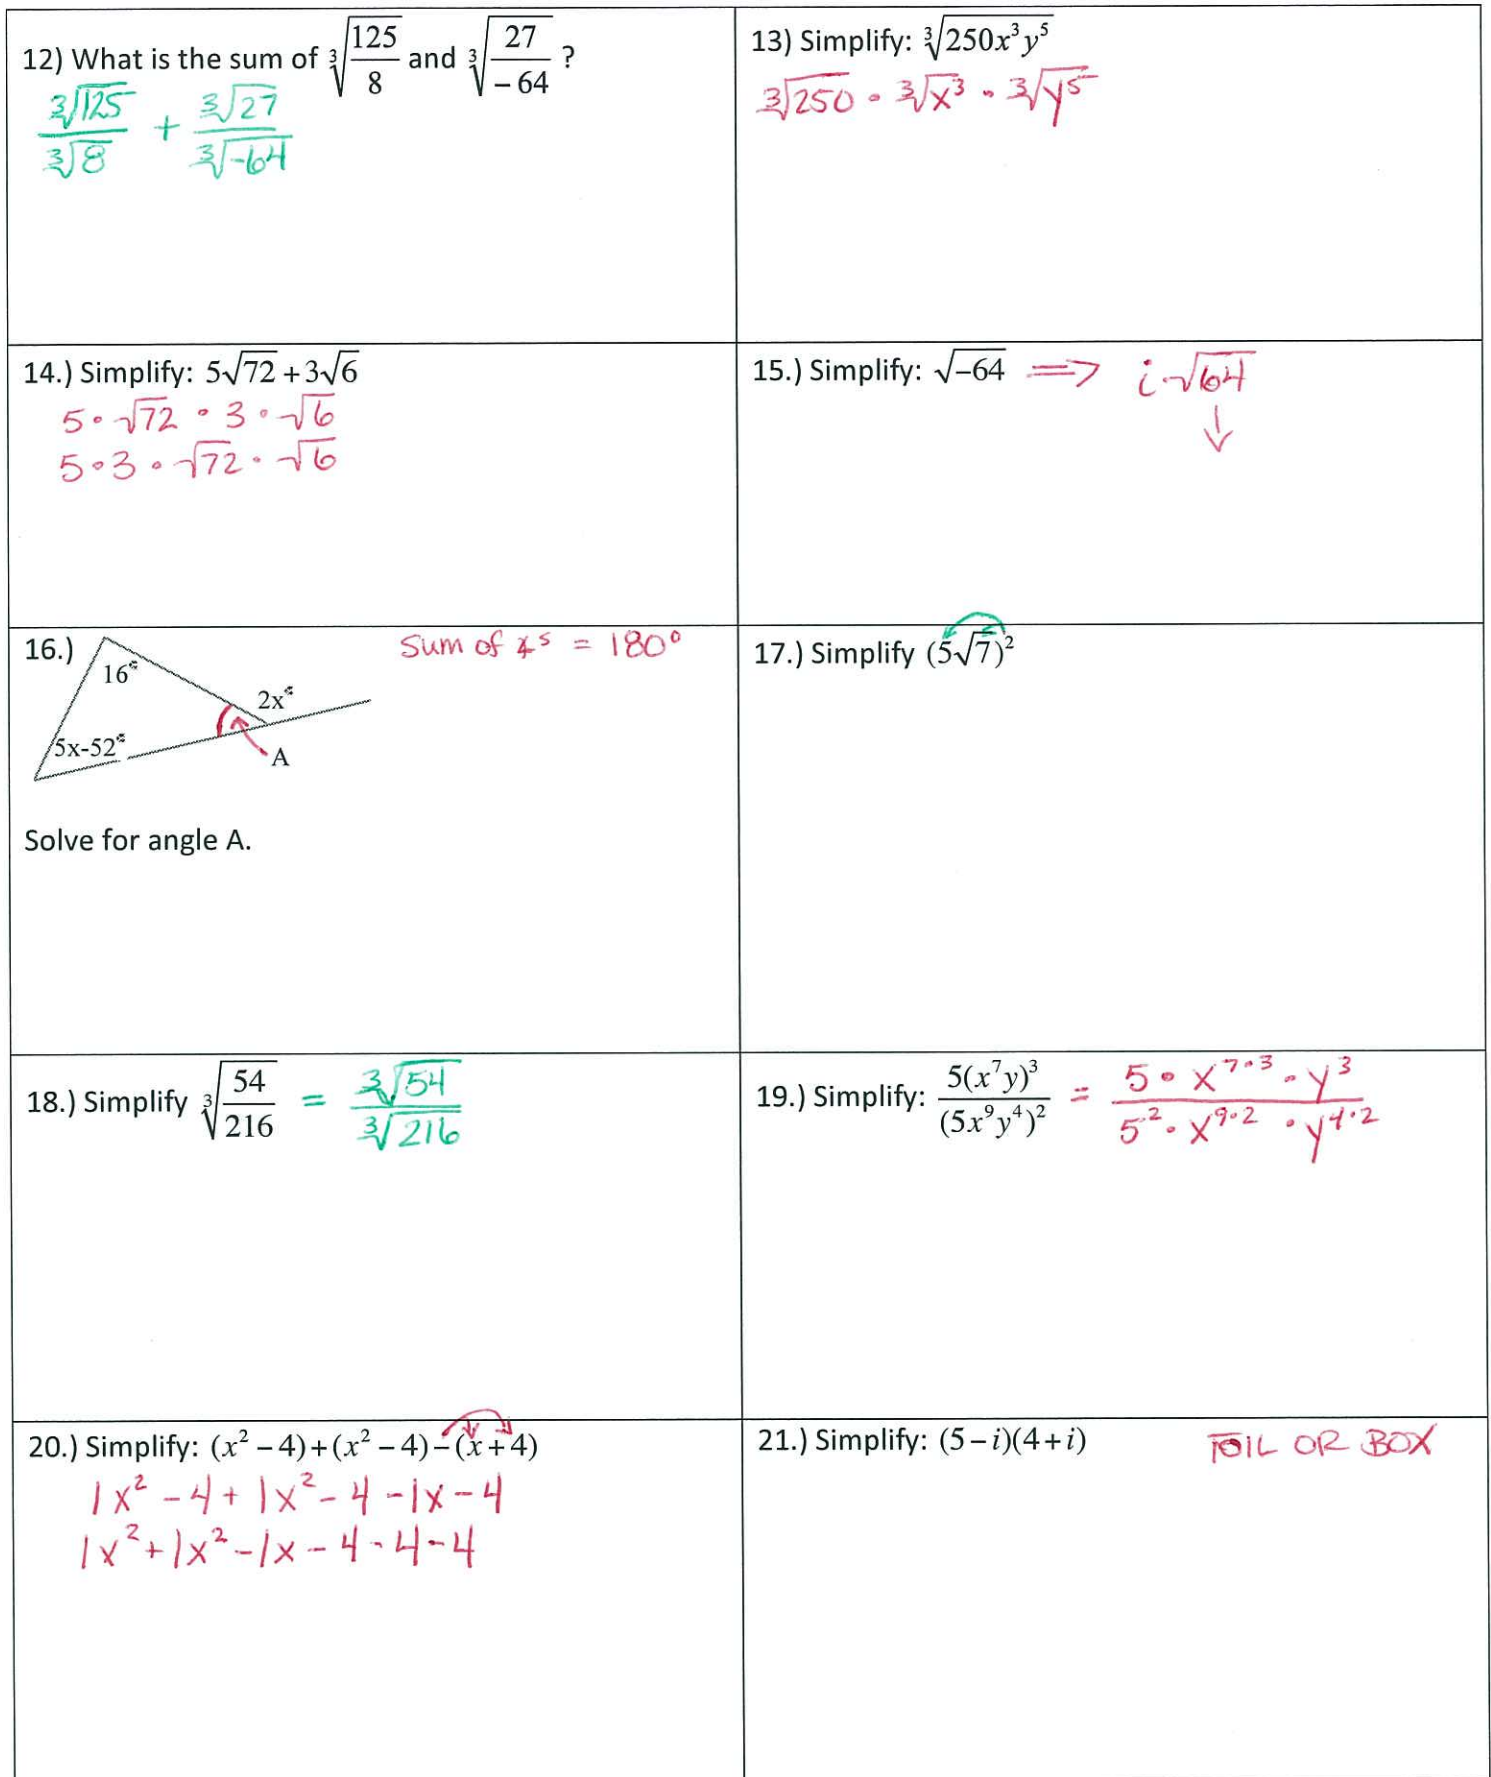 12) What is the sum of ∛(125/8) and ∛(27/−64) ?
∛125/∛8 + ∛27/∛-64
13) Simplify: ∛(250x³y⁵)
∛250 · ∛x³ · ∛y⁵
14.) Simplify: 5√72 + 3√6
5 · √72 · 3 · √6
5 · 3 · √72 · √6
15.) Simplify: √−64 ⇒ i·√64
↓
16.)
Sum of ∡s = 180°
16°
2x°
5x-52°
A
Solve for angle A.
17.) Simplify (5√7)²
18.) Simplify ∛(54/216) = ∛54/∛216
19.) Simplify: 5(x⁷y)³/(5x⁹y⁴)² = 5 · x^(7·3) · y³/5² · x^(9·2) · y^(4·2)
20.) Simplify: (x² − 4) + (x² − 4) − (x + 4)
1x² - 4 + 1x² - 4 - 1x - 4
1x² + 1x² - 1x - 4 - 4 - 4
21.) Simplify: (5 − i)(4 + i)
FOIL OR BOX